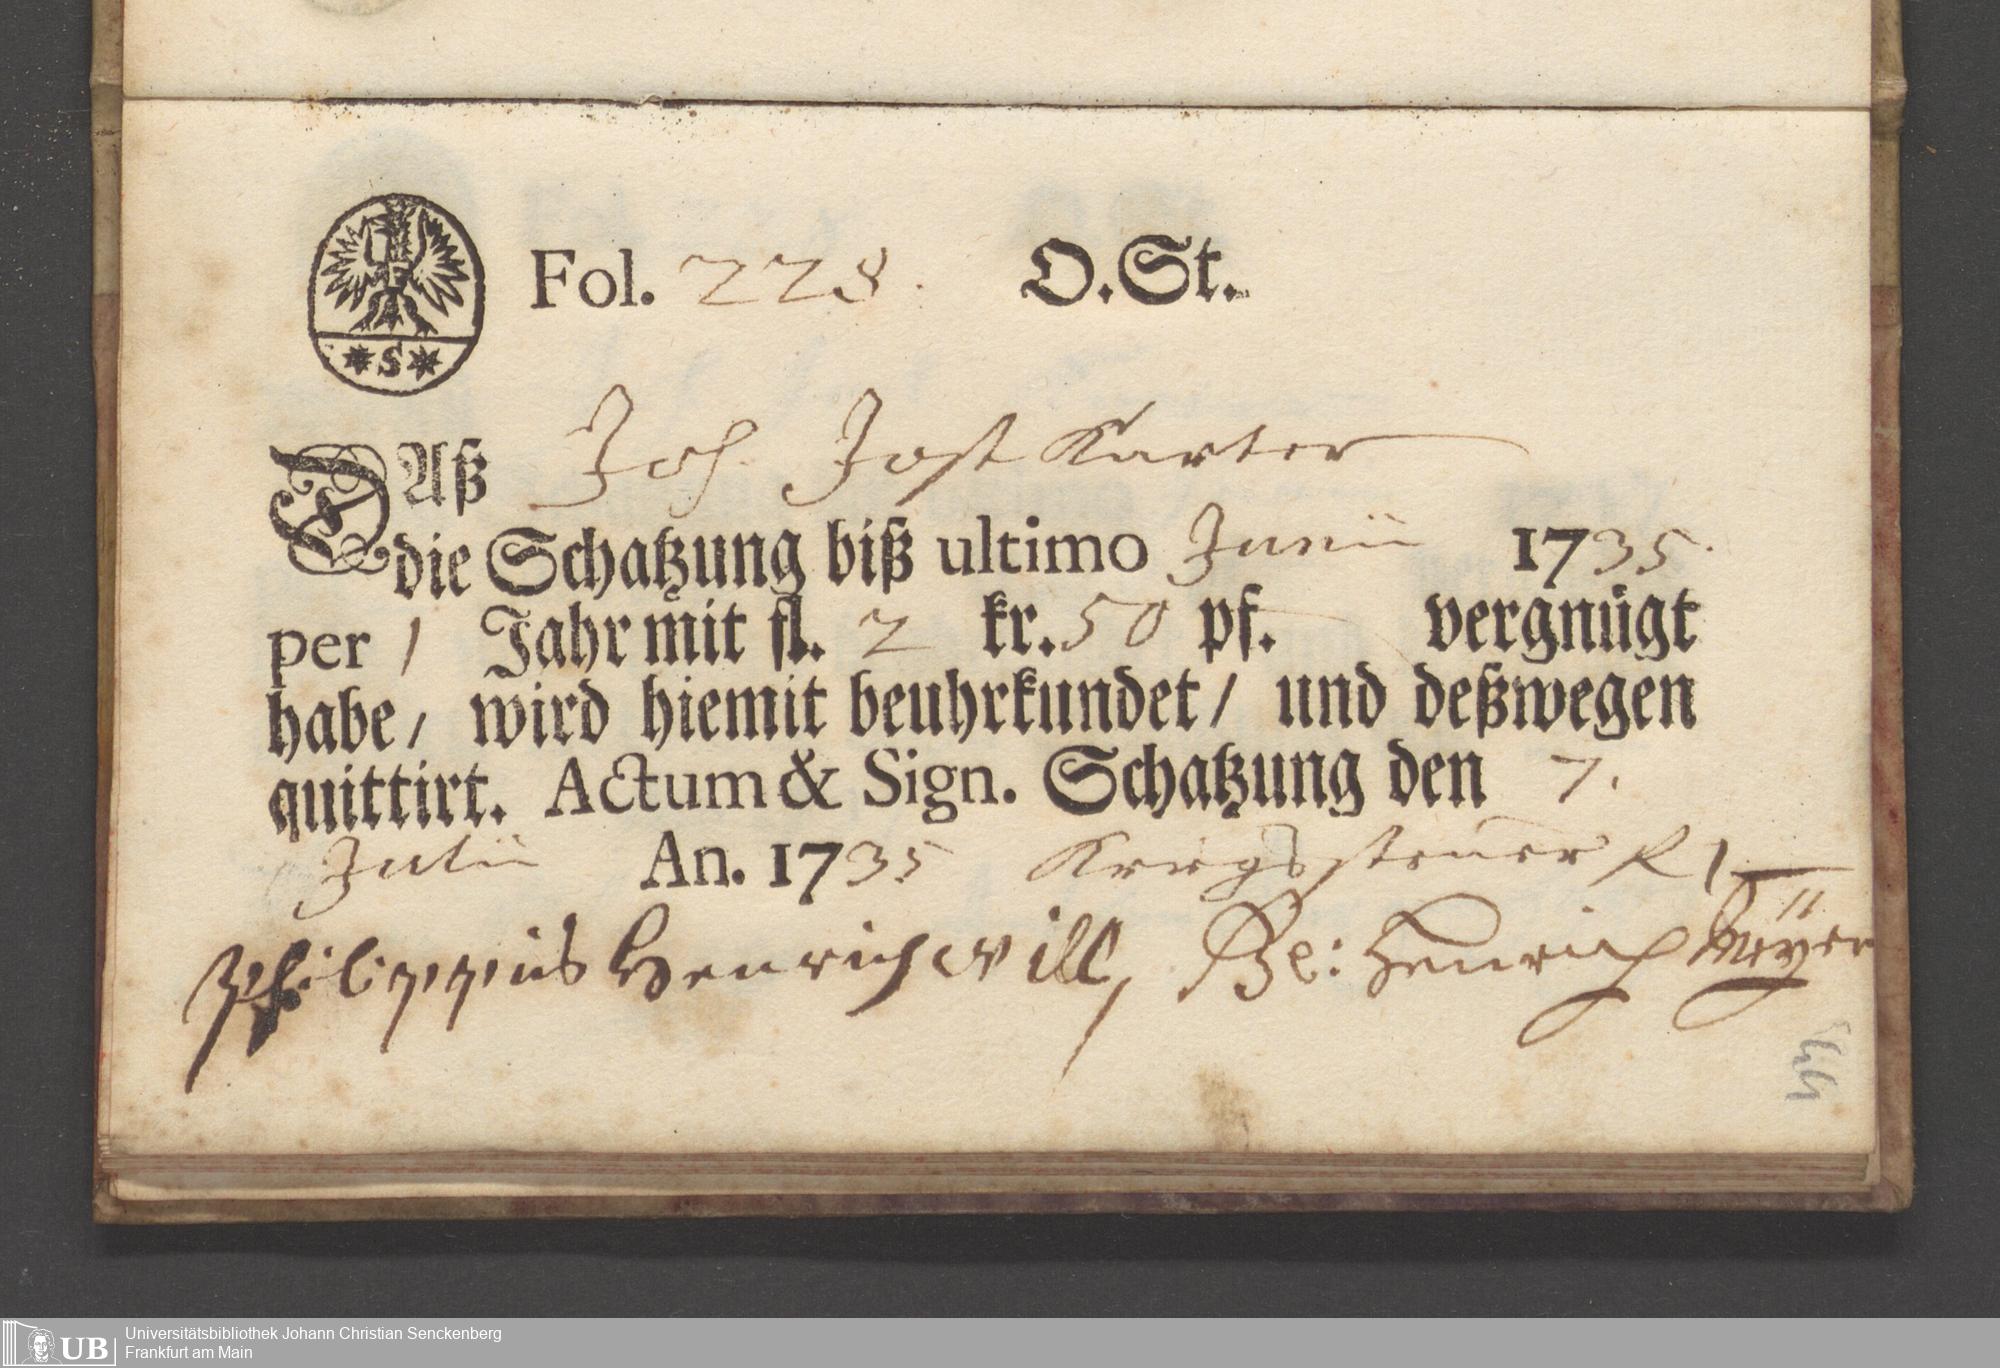 Fol. 228. O.St.
*S*
DAß Joh. Jost Karter
die Schatzung biß ultimo Junii 1735.
per 1 Jahr mit fl. 2 kr. 50 pf. vergnügt
habe, wird hiemit beuhrkundet, und deßwegen
quittirt. Actum & Sign. Schatzung den 7.
Julii An. 1735 Kriegssteuer fl 1
Philippus Henrich Will, Henrich Meÿer
UB Universitätsbibliothek Johann Christian Senckenberg
Frankfurt am Main